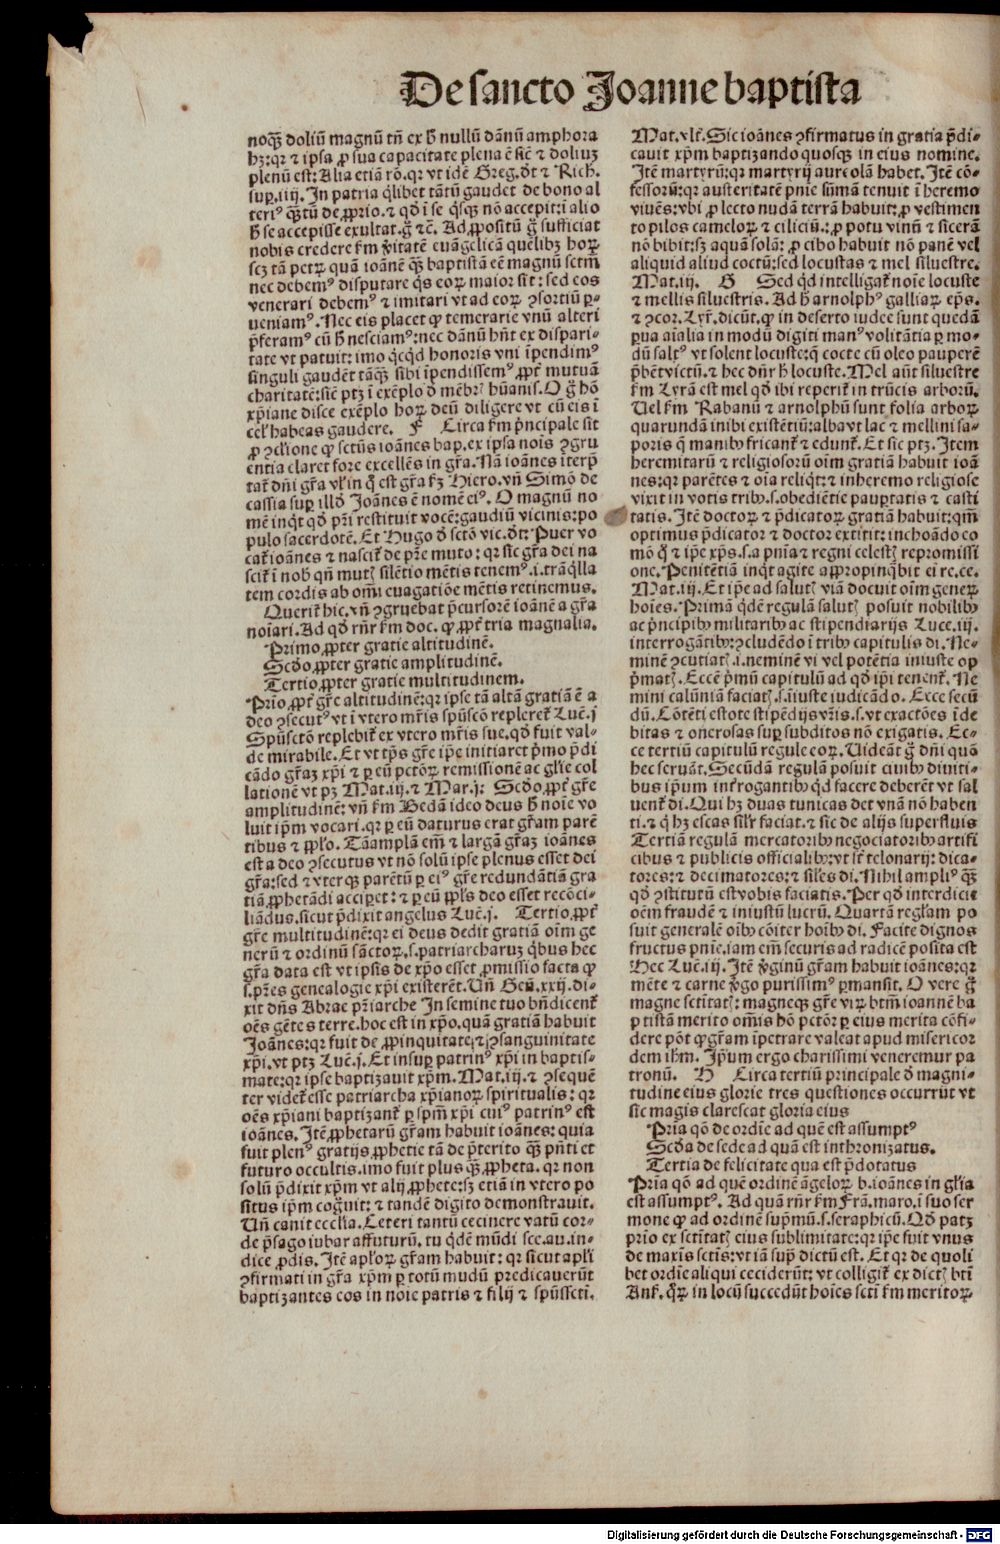 De sancto Joanne baptista
noqȝ doliū magnū tñ ex h̄ nullū dānū amphora
hȝ: qꝛ ⁊ ipsa ꝓ sua capacitate plena ē sic̄ ⁊ doliuȝ
plenū est: Alia etiā rō. qꝛ vt idē Greg. dt̄ ⁊ Rich.
suꝑ .iiij. In patria q̄libet tātū gaudet de bono al
teriꝰ q̄ȝtū de ꝓprio. ⁊ qd̄ ī se q̄sqȝ nō accepit: ī alio
h̄ se accepisse exultat. g̊ ⁊c̄. Ad ꝓpositū g̊ sufficiat
nobis credere fm v̄itatē euāgelicā quēlibȝ hoꝝ
scȝ tā petꝝ quā ioānē q̄ȝ baptistā eē magnū sctm̄
nec debemꝰ disputare q̄s eoꝝ maior sit: sed eos
venerari debemꝰ ⁊ imitari vt ad eoꝝ ꝯsortiū ꝑ-
ueniamꝰ. Nec eis placet ꝙ temerarie vnū alteri
p̄feramꝰ cū h̄ nesciamꝰ: nec dānū hn̄t ex dispari-
tate vt patuit: imo qͥcqͥd honoris vni īpendimꝰ
singuli gaudēt tāqȝ sibi īpendissemꝰ ꝓpt̄ mutuā
charitatē: sic̄ ptȝ ī exēplo d̄ mēbꝛ̄ hūanis. O g̊ hō
xp̄iane disce exēplo hoꝝ deū diligere vt cū eis ī
cel̄ habeas gaudere. F Circa fm p̄ncipale sit
ꝓ ꝯclꝰione ꝙ sctūs ioānes bap. ex ipsa nois ꝯgru
entia claret fore excellēs in gr̄a. Nā ioānes īterp̄
tat̄ dn̄i gr̄a vl̄ in q̊ est gr̄a fȝ Hiero. vn̄ Simō de
cassia suꝑ illd̄ Joānes ē nomē eiꝰ. O magnū no
mē inqͥt qd̄ pr̄i restituit vocē: gaudiū vicinis: po
pulo sacerdotē. Et Hugo d̄ sctō vic. dt̄: Puer vo
cat̄ ioānes ⁊ nascit̄ de pr̄e muto: qꝛ sic gr̄a dei na
scit̄ ī nob̄ qn̄ mutꝭ silētio mētis tenemꝰ .i. trāqͥlla
tem cordis ab om̄i euagatiōe mētis retinemus.
Querit̄ hic. vn̄ ꝯgruebat p̄cursorē ioānē a gr̄a
noiari. Ad qd̄ rn̄r fm doc. ꝙ ꝓpt̄ tria magnalia.
Primo ꝓpter gratie altitudinē.
Scd̄o ꝓpter gratie amplitudinē.
Tertio ꝓpter gratie multitudinem.
Prīo ꝓpt̄ gr̄e altitudinē: qꝛ ipse tā altā gratiā ē a
deo ꝯsecutꝰ vt ī vtero mr̄is spūscō repleret̄ Luc̄. j
Spūsctō replebit̄ ex vtero mr̄is sue. qd̄ fuit val-
de mirabile. Et vt tp̄s gr̄e ip̄e initiaret p̄mo p̄di
cādo gr̄aȝ xp̄i ⁊ ꝑ eū pctōꝝ remissionē ac glīe col
lationē vt pȝ Mat. iij. ⁊ Mar. j: Scd̄o ꝓpt̄ gr̄e
amplitudinē: vn̄ fm Bedā ideo deus h̄ noīe vo
luit ip̄m vocari. qꝛ ꝑ eū daturus erat gr̄am parē
tibus ⁊ pp̄lo. Tā amplā em̄ ⁊ largā gr̄aȝ ioānes
est a deo ꝯsecutus vt nō solū ipse plenus esset dei
gr̄a: sed ⁊ vterqȝ parētū ꝑ eiꝰ gr̄e redundātiā gra
tiā ꝓphetādi acciꝑet: ⁊ ꝑ eū pp̄ls deo esset recōci-
liādus. sicut p̄dixit angelus Luc̄. j. Tertio ꝓpt̄
gr̄e multitudinē: qꝛ ei deus dedit gratiā oīm ge
nerū ⁊ ordinū sāctoꝝ .s. patriarcharuȝ qͥbus hec
gr̄a data est vt ipsis de xp̄o esset ꝓmissio facta ꝙ
.s. pr̄es genealogie xp̄i existerēt. Vn̄ Gen̄. xxij. di-
xit dn̄s Abrae pr̄iarche In semine tuo bn̄dicent̄
oēs gētes terre. hoc est in xp̄o. quā gratiā habuit
Joānes: qꝛ fuit de ꝓpinquitate ⁊ ꝯsanguinitate
xp̄i. vt ptȝ Luc̄. j. Et insuꝑ patrinꝰ xp̄i in baptis-
mate: qꝛ ipse baptizauit xp̄m. Mat. iij. ⁊ ꝯsequē
ter videt̄ esse patriarcha xp̄ianoꝝ spiritualis: qꝛ
oēs xp̄iani baptizant̄ ꝑ spm̄ xp̄i cuiꝰ patrinꝰ est
ioānes. Itē ꝓphetarū gr̄am habuit ioānes: quia
fuit plenꝰ gratijs ꝓphetie tā de p̄terito q̄ȝ pn̄ti et
futuro occultis. imo fuit plus q̄ȝ ꝓpheta. qꝛ non
solū p̄dixit xp̄m vt alij ꝓphete: sȝ etiā in vtero po
situs ip̄m cog̊uit: ⁊ tandē digito demonstrauit.
Vn̄ canit eccl̄ia. Ceteri tantū cecinere vatū cor-
de p̄sago iubar affuturū. tu qͥdē mūdi sce. au. in-
dice ꝓdis. Itē apl̄oꝝ gr̄am habuit: qꝛ sicut apl̄i
ꝯfirmati in gr̄a xp̄m ꝑ totū mudū predicauerūt
baptizantes eos in noie patris ⁊ filij ⁊ spūsscti.
Mat. vlt̄. Sic ioānes ꝯfirmatus in gratia p̄di-
cauit xp̄m baptizando quosqȝ in eius nomine.
Itē martyrū: qꝛ martyrij aureolā habet. Itē cō-
fessorū: qꝛ austeritatē pn̄ie sūmā tenuit ī heremo
viuēs: vbi ꝓ lecto nudā terrā habuit: ꝓ vestimen
to pilos cameloꝝ ⁊ ciliciū.: ꝓ potu vinū ⁊ sicerā
nō bibit: sȝ aquā solā: ꝓ cibo habuit nō panē vel
aliquid aliud coctū: sed locustas ⁊ mel siluestre.
Mat. iij. G Sed qͥd intelligat̄ noīe locuste
⁊ mellis siluestris. Ad h̄ arnolphꝰ galliaꝝ ep̄s.
⁊ ꝯcor. Lyr̄. dicūt. ꝙ in deserto iudee sunt quedā
ꝑua aīalia in modū digiti manꝰ volitātia ꝑ mo-
dū saltꝰ vt solent locuste: q̄ cocte cū oleo pauperē
p̄bēt victū. ⁊ hec dn̄r h̄ locuste. Mel aūt siluestre
fm Lyrā est mel qd̄ ibi reperit̄ in trūcis arborū.
Uel fm Rabanū ⁊ arnolphū sunt folia arboꝝ
quarundā inibi existētiū: alba vt lac ⁊ mellini sa-
poris q̄ manibꝰ fricant̄ ⁊ edunt̄. Et sic ptȝ. Item
heremitarū ⁊ religiosorū oīm gratiā habuit ioā
nes: qꝛ parētes ⁊ oīa reliqͥt: ⁊ in heremo religiose
vixit in votis tribꝰ .s. obediētie pauꝑtatis ⁊ casti
tatis. Itē doctoꝝ ⁊ p̄dicatoꝝ gratiā habuit: qm̄
optimus p̄dicator ⁊ doctor extitit: inchoādo eo
mō q̊ ⁊ ip̄e xp̄s .s. a pn̄ia ⁊ regni celestꝭ repromissi
one. Penitētiā inqͥt agite appropinq̄bit ei re. ce.
Mat. iij. Et ip̄e ad salutꝭ viā docuit oīm geneꝝ
hoīes. Primā qͥdē regulā salutꝭ posuit nobilibꝰ
ac p̄ncipibꝰ militaribꝰ ac stipendiarijs Luce. iij.
interrogātibꝰ: ꝯcludēdo ī tribꝰ capitulis di. Ne-
minē ꝯcutiatꝭ .i. neminē vi vel potētia iniuste op
p̄matꝭ. Eccē p̄mū capitulū ad qd̄ ip̄i tenent̄. Ne
mini calūniā faciatꝭ .s. īiuste iudicādo. Ecce secū
dū. Cōtēti estote stipēdijs vr̄is .s. vt exactōes īde
bitas ⁊ onerosas suꝑ subditos nō exigatis. Ec-
ce tertiū capitulū regule eoꝝ. Uideāt g̊ dn̄i quō
hec seruāt. Secūdā regulā posuit ciuibꝰ diuiti-
bus ip̄um int̄rogantibꝰ qͥd facere deberēt vt sal
uent̄ di. Qui hȝ duas tunicas det vnā nō haben
ti. ⁊ q̄ hȝ escas sil̄r faciat. ⁊ sic de alijs superfluis
Tertiā regulā mercatoribꝰ negociatoribꝰ artifi
cibus ⁊ publicis officialibꝰ: vt sc̄t telonarij: dica-
tores: ⁊ decimatores: ⁊ siles di. Nihil ampliꝰ q̄ȝ
qd̄ ꝯstitutū est vobis faciatis. Per qd̄ interdicit
oēm fraudē ⁊ iniustū lucrū. Quartā regl̄am po
suit generalē oībꝰ cōiter hoībꝰ di. Facite dignos
fructus pn̄ie. iam em̄ securis ad radicē posita est
Hec Luc̄. iij. Itē v̄ginū gr̄am habuit ioānes: qꝛ
mēte ⁊ carne v̄go purissimꝰ ꝑmansit. O vere g̊
magne sctītatꝭ: magneqȝ gr̄e viꝝ btm̄ ioannē ba
ptistā merito om̄is hō pctōꝝ ꝑ eius merita cōfi-
dere pōt ꝙ gr̄am īpetrare valeat apud misericor
dem ih̄m. Ip̄um ergo charissimi veneremur pa
tronū. H Circa tertiū principale d̄ magni-
tudine eius glorie tres questiones occurrūt vt
sic magis clarescat gloria eius
Prīa qō de ordīe ad quē est assumptꝰ
Scd̄a de sede ad quā est inthronizatus.
Tertia de felicitate qua est p̄dotatus
Prīa qō ad quē ordinē āgeloꝝ b. ioānes in glīa
est assumptꝰ. Ad quā rn̄r fm Frā. maro. ī suo ser
mone ꝙ ad ordinē sup̄mū .s. seraphicū. Qd̄ patȝ
prīo ex sctītatꝭ eius sublimitate: qꝛ ip̄e fuit vnus
de maxīs sctīs: vt iā sup̄ dictū est. Et qꝛ de quoli
bet ordīe aliqui ceciderūt: vt colligit̄ ex dictꝭ bt̄i
Ans̄. q̊ꝝ in locū succedūt hoīes scti fm meritoꝝ
Digitalisierung gefördert durch die Deutsche Forschungsgemeinschaft - DFG